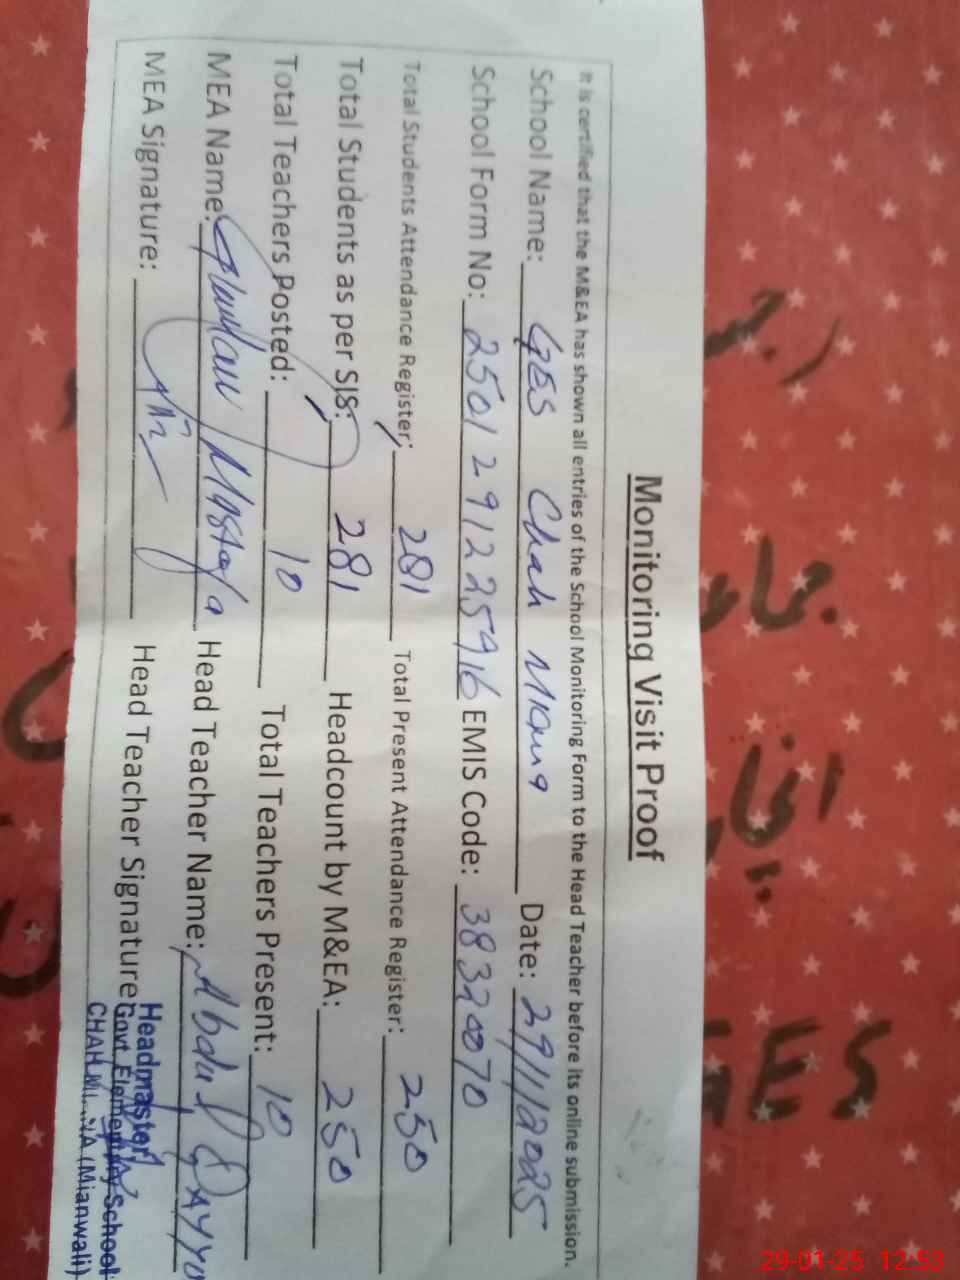 Monitoring Visit Proof
It is certified that the M&EA has shown all entries of the School Monitoring Form to the Head Teacher before its online submission.
School Name: GES Chah Miana Date: 29/1/2025
School Form No: 2501291225916 EMIS Code: 38320070
Total Students Attendance Register: 281 Total Present Attendance Register: 250
Total Students as per SIS: 281 Headcount by M&EA: 250
Total Teachers Posted: 10 Total Teachers Present: 10
MEA Name: Ghulam Mustafa Head Teacher Name: Abdul Qayyu
MEA Signature: Head Teacher Signature
Headmaster
Govt Elementary School
(Mianwali)
29-01-25 12:53